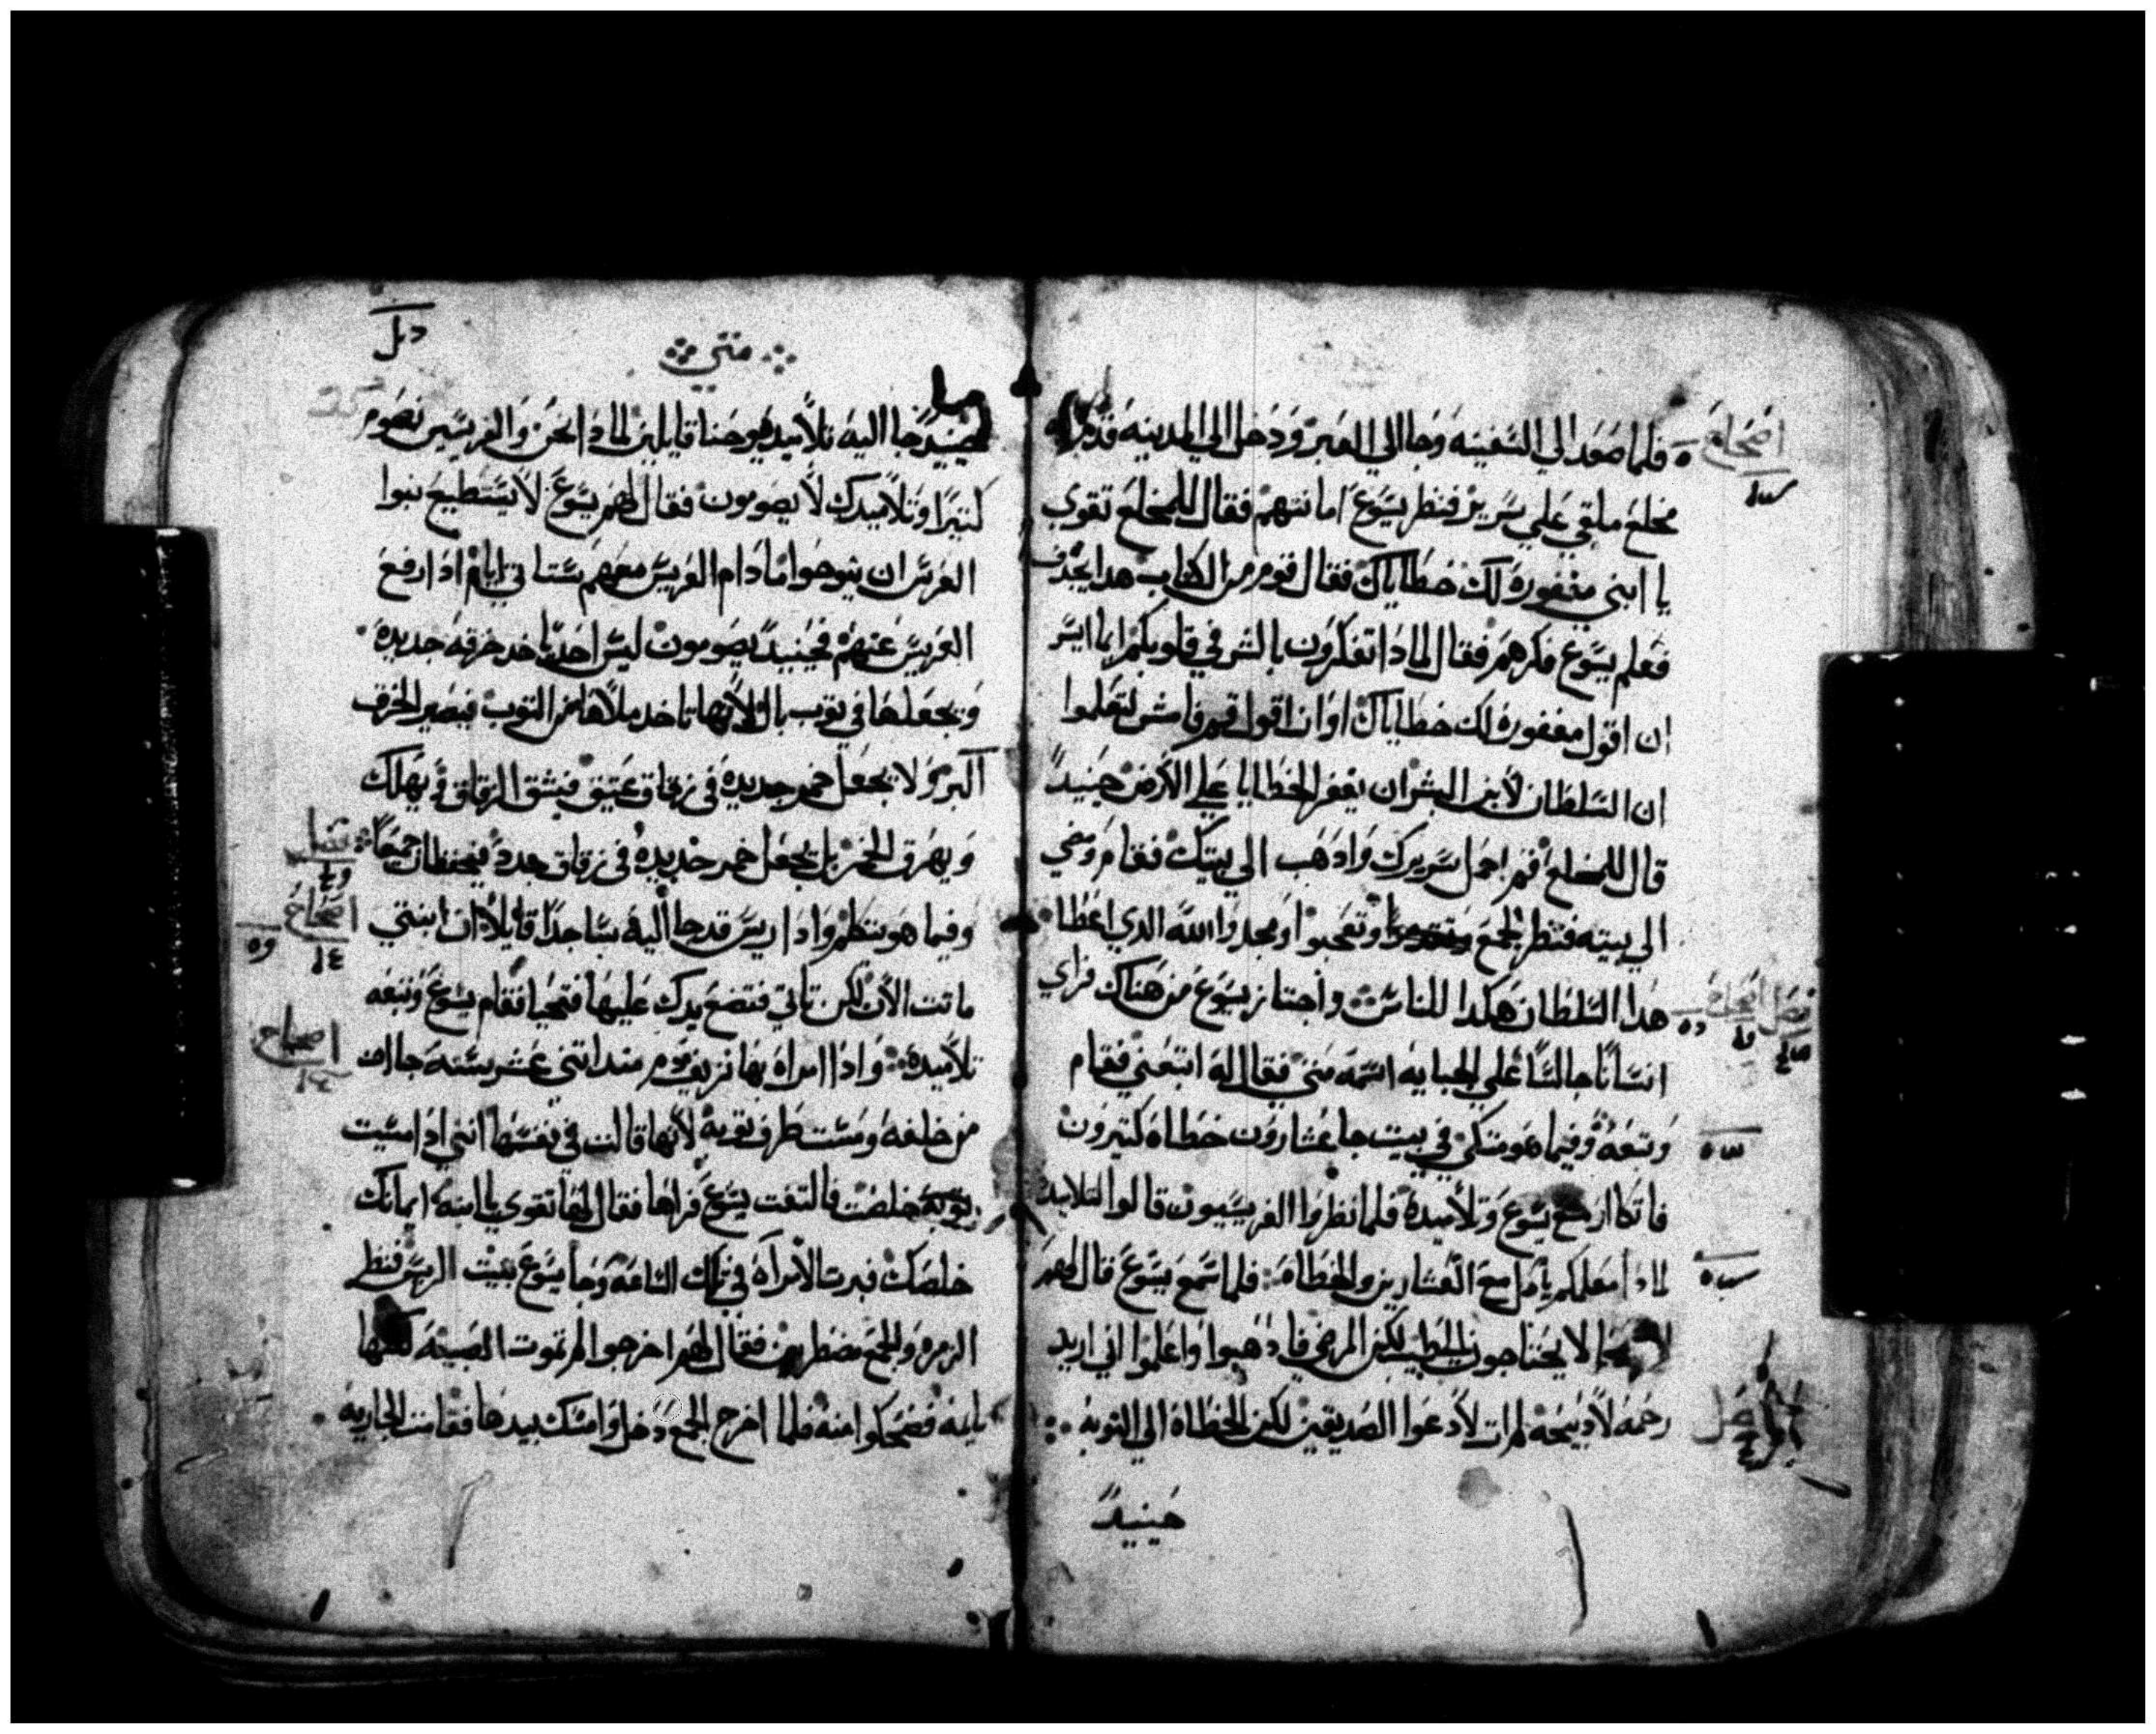 اصحاح
فلما صعد الي السفينه وجا الي العبر ودخل الي المدينه فقدموا له
مخلع ملقي علي سرير فنظر يسوع امانتهم فقال للمخلع تقوي
يا ابني مغفوره لك خطاياك فقال قوم من الكتاب هدا يجدف
فعلم يسوع فكرهم فقال لمادا تفكرون بالشر في قلوبكم ايما ايسر
ان اقول مغفوره لك خطاياك او ان اقول قم فامش لتعلموا
ان السلطان لابن البشر ان يغفر الخطايا علي الارض حينيدً
قال للمخلع قم احمل سريرك وادهب الي بيتك فقام ومضي
الي بيته فنظر الجمع وتعجبوا ومجدوا الله الدي اعطا
فصل اصحاح
هدا السلطان هكدا للناس واجتاز يسوع من هناك فراي
انسانًا جالسًا علي الجبايه اسمه متي فقال له اتبعني فقام
وتبعه وفيما هو متكي في بيت جا عشارون خطاه كتيرون
فاتكا مع يسوع وتلاميده فلما نظروا الفريسيون قالوا لتلاميده
لمادا معلمكم ياكل مع العشارين والخطاه فلما سمع يسوع قال لهم
لا يحتاجون لطبيب لكن المرضي فادهبوا واعلموا اني اريد
رحمه لا دبيحه لم ات لادعوا الصديقين لكن الخطاه الي التوبه
حينيدً
متي
حينيدً جا اليه تلاميد يوحنا قايلين لمادا نحن والفريسين نصوم
كتيرًا وتلاميدك لا يصومون فقال لهم يسوع لا يستطيع بنوا
العرس ان ينوحوا ما دام العريس معهم ستاتي ايام ادا ارفع
العريس عنهم فحينيدً يصومون ليس احد ياخد خرقه جديده
ويجعلها في توب بال لانها تاخد ملاها من التوب فيصير الخرق
اكبر ولا يجعل خمر جديده في زقاق عتيق فينشق الزقاق ويهلك
ويهرق الخمر بل يجعل خمر جديده في زقاق جدد فيحفظان جميعاً
اصحاح
وفيما هو يتكلم وادا ريس قد جا اليه ساجدًا قايلاً ان ابنتي
ماتت الان لكن تاتي فتضع يدك عليها فتحيا فقام يسوع وتبعه
اصحاح
تلاميده وادا امراه بها نزيف دم مند اتني عشر سنه جات
من خلفه ومست طرف توبه لانها قالت في نفسها انني ادا مسيت
توبه خلصت فالتفت يسوع فراها فقال لها تقوي يا ابنه ايمانك
خلصك فبرت الامراه في تلك الساعه وجا يسوع بيت الريس فنظر
الزمره والجمع مضطربين فقال لهم اخرجوا لم تموت الصبيه لكنها
نايمه فضحكوا منه فلما اخرج الجمع دخل وامسك بيدها فقامت الجاريه